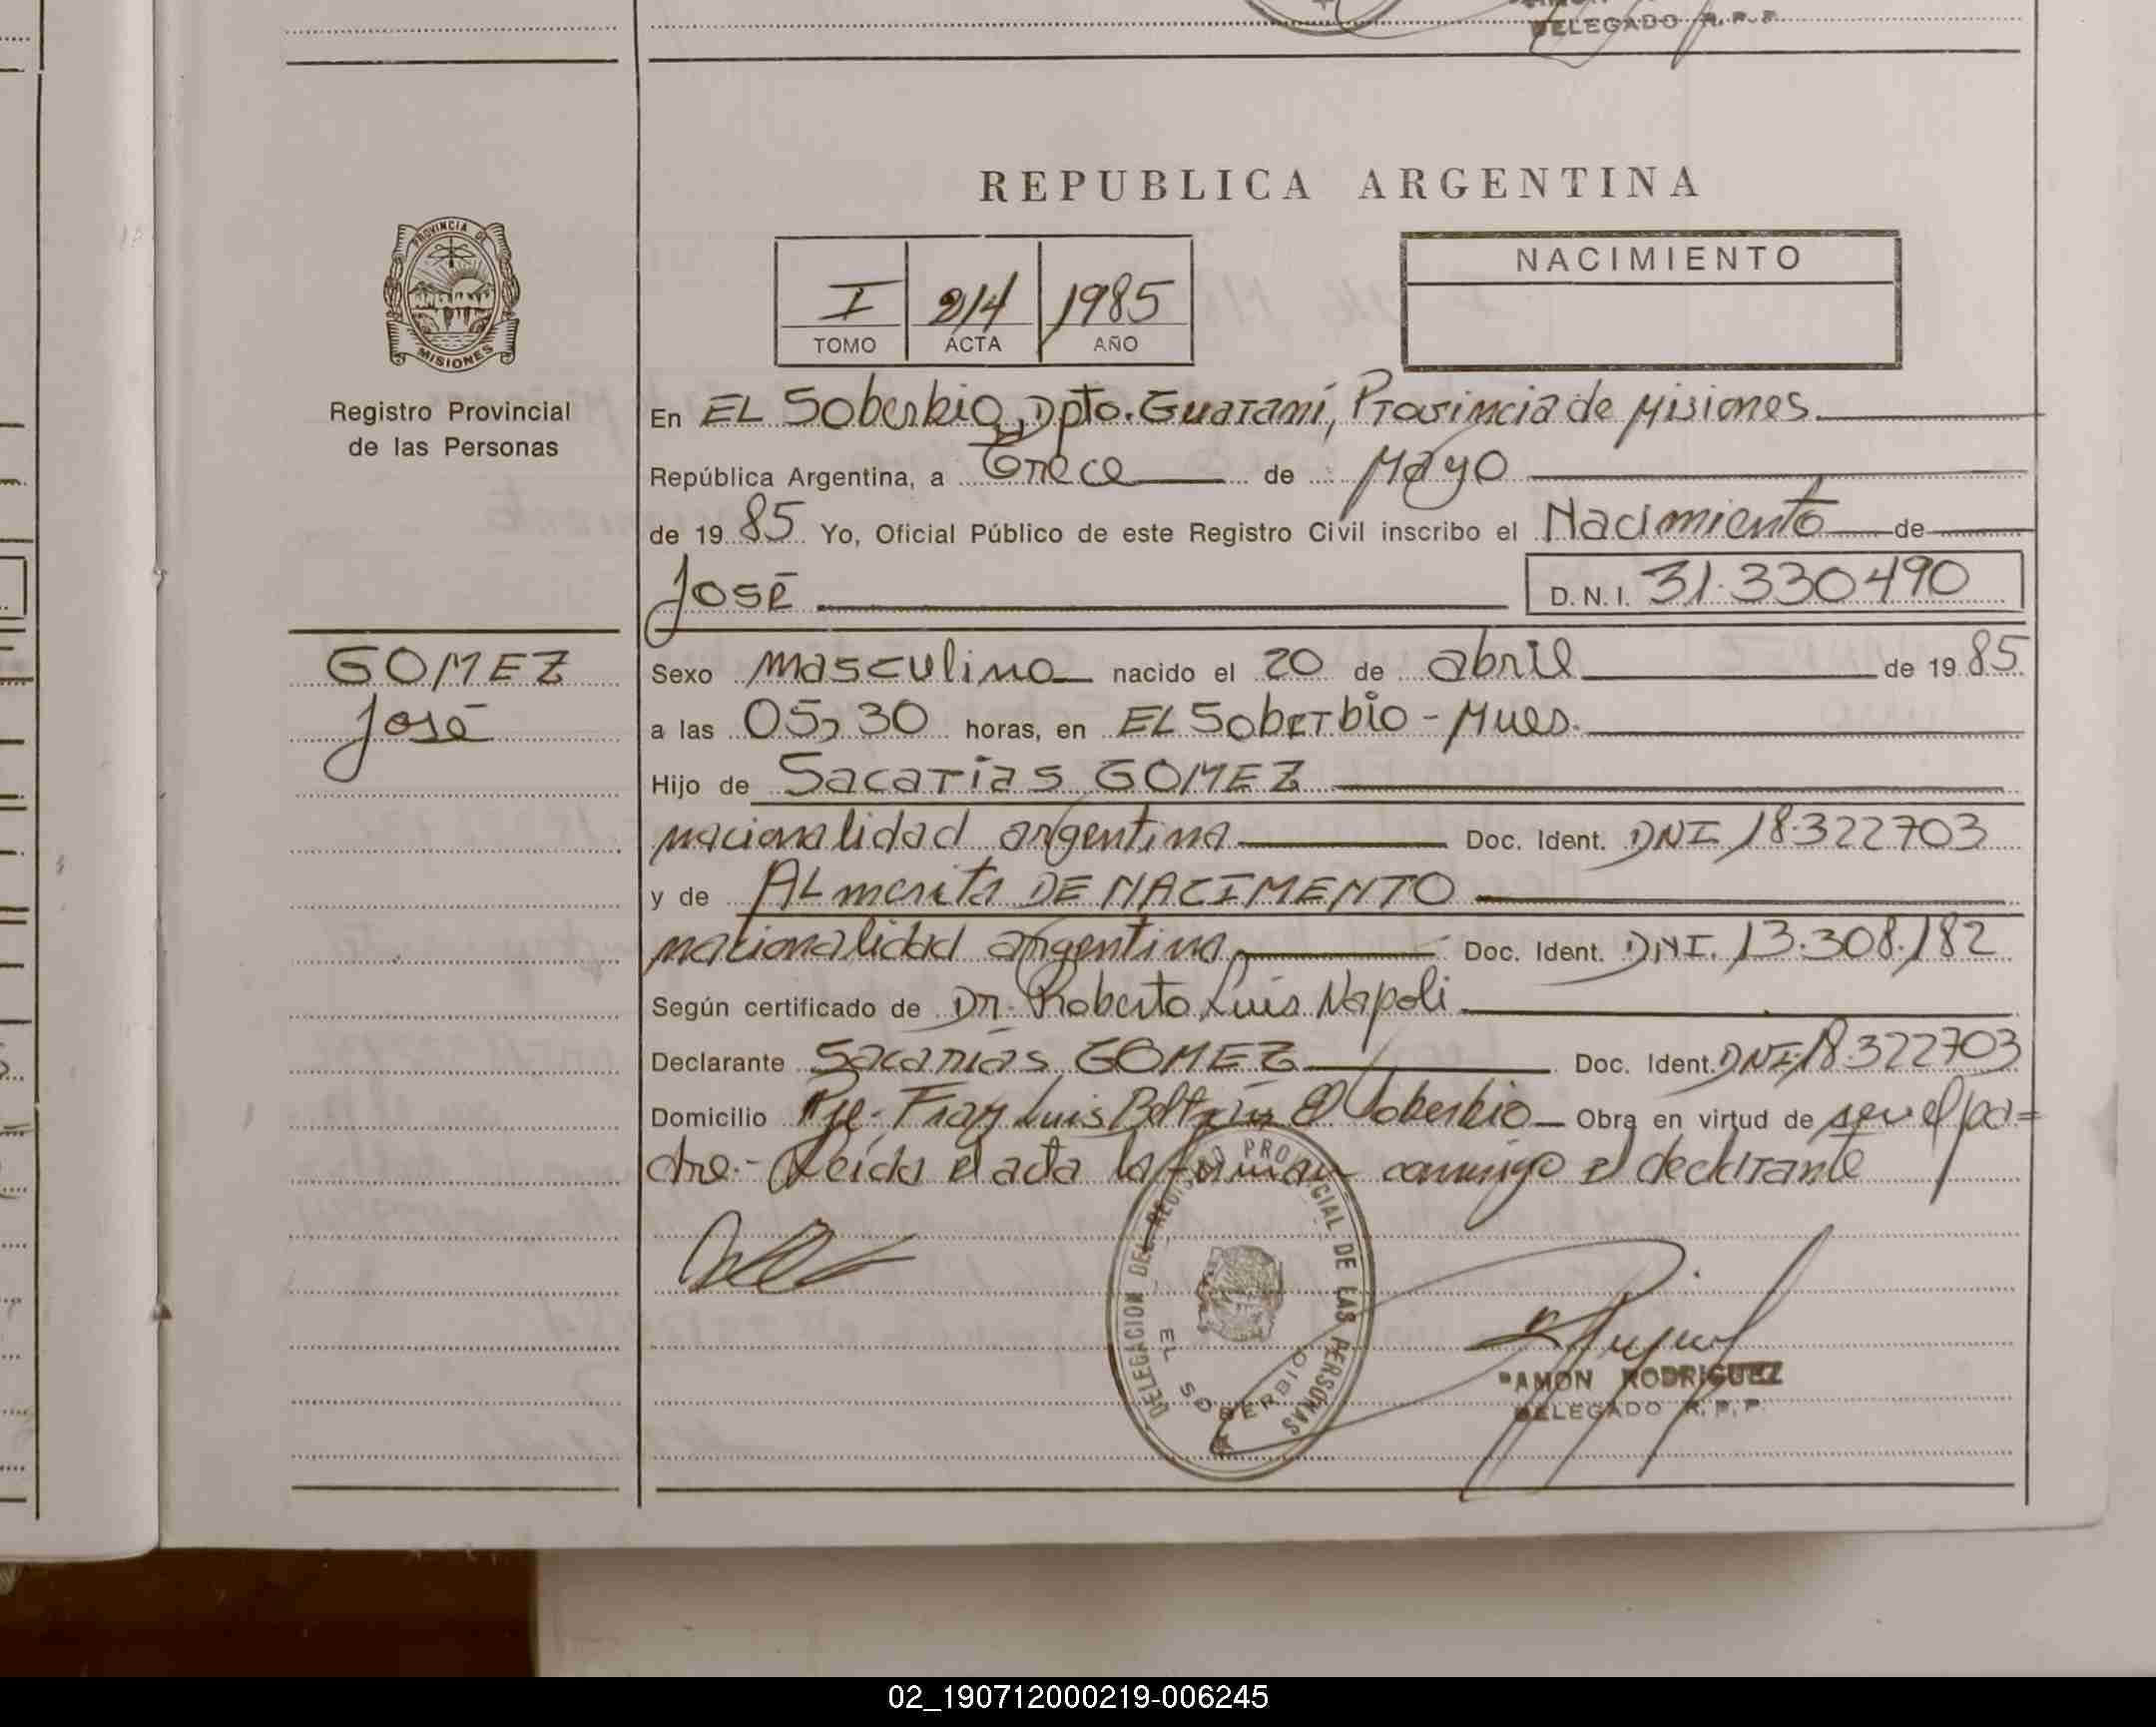 DELEGADO R.P.P.
REPUBLICA ARGENTINA
PROVINCIA DE
MISIONES
Registro Provincial
de las Personas
I 214 1985
TOMO ACTA AÑO
NACIMIENTO
En EL Soberbio, Dpto. Guaraní, Provincia de Misiones
República Argentina, a Trece de Mayo
de 1985 Yo, Oficial Público de este Registro Civil inscribo el Nacimiento de
José D.N.I. 31.330490
GOMEZ
José
Sexo masculino nacido el 20 de abril de 1985
a las 05,30 horas, en EL Soberbio - Mnes.
Hijo de Sacarías GOMEZ
nacionalidad argentina Doc. Ident. DNI 18.322703
y de ALmerita DE NACIMENTO
nacionalidad argentina Doc. Ident. DNI. 13.308.182
Según certificado de Dr. Roberto Luis Napoli
Declarante Sacarías GOMEZ Doc. Ident. DNI. 18.322703
Domicilio Pje. Fray Luis Beltrán El Soberbio Obra en virtud de ser el pa=
dre.- Leída el acta la firman conmigo el declarante
DELEGACION DEL REGISTRO PROVINCIAL DE LAS PERSONAS
EL SOBERBIO
RAMON RODRIGUEZ
DELEGADO R.P.P.
02_190712000219-006245